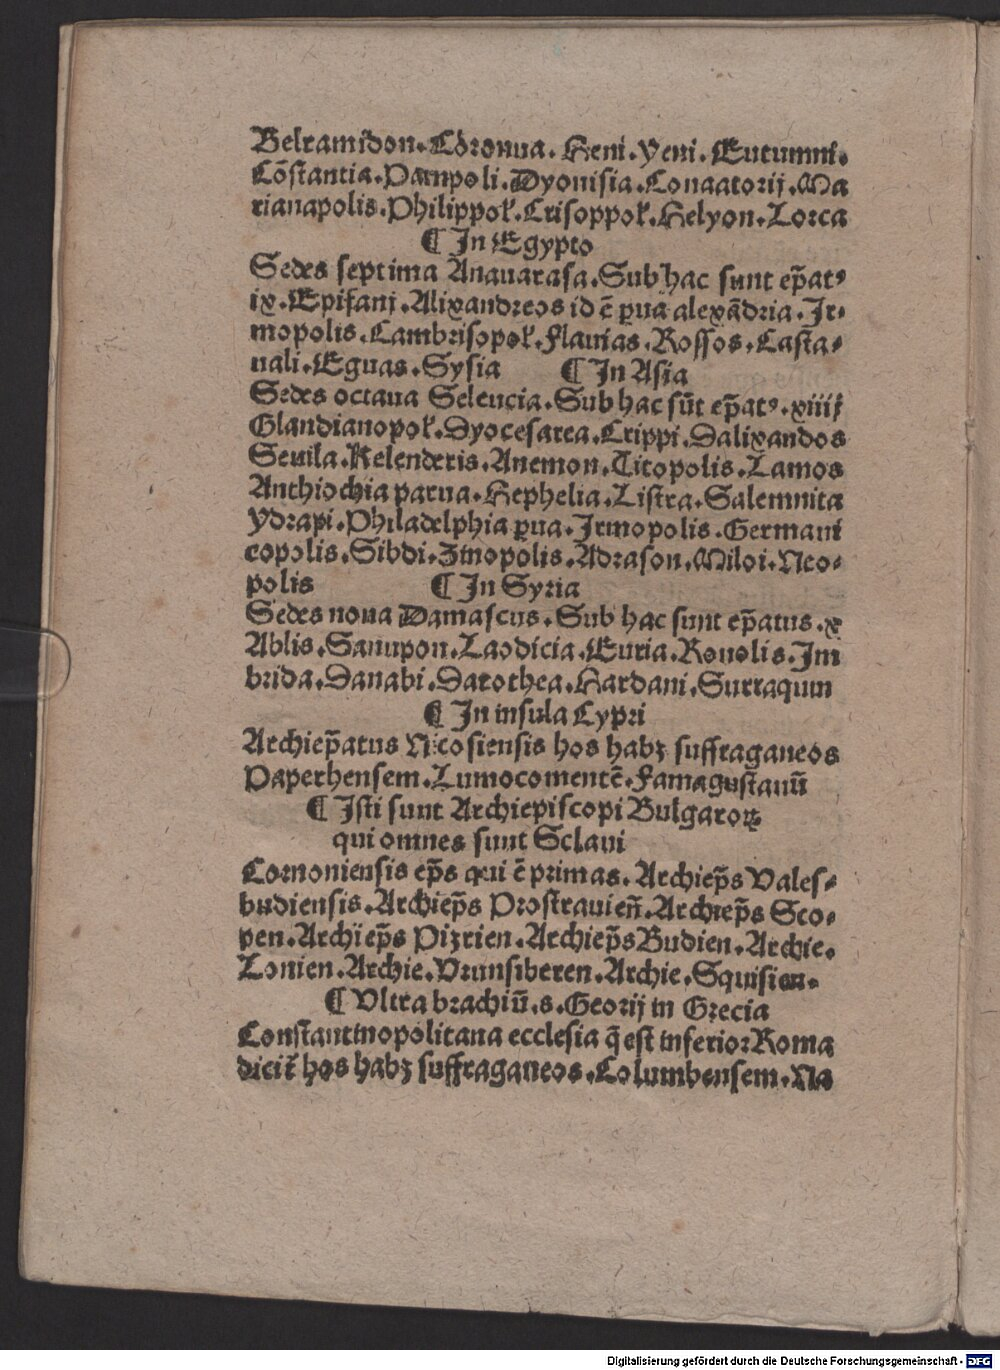 Beltamidon. Cōronua. Heni. Yeni. Eutumni.
Cōstantia. Pampoli. Dyonisia. Conaatorij. Ma
rianapolis. Philippoł. Crisoppoł. Helyon. Lorca
¶ In Egypto
Sedes septima Anauarasa. Sub hac sunt ep̄atꝰ
ix. Epifani. Alixandreos id ē ꝑua alexādria. Ir⸗
mopolis. Cambrisopoł. Flauias. Rossos. Casta⸗
uali. Eguas. Sysia ¶ In Asia
Sedes octaua Seleucia. Sub hac sūt ep̄atꝰ. xxiiij
Glandianopoł. Dyocesarea. Crippi. Dalixandos
Seuila. Kelenderis. Anemon. Titopolis. Lamos
Anthiochia parua. Hephelia. Listra. Salemnita
Ydrapi. Philadelphia ꝑua. Irmopolis. Germani
copolis. Sibdi. Zinopolis. Adrason. Miloi. Neo⸗
polis ¶ In Syria
Sedes nona Damascus. Sub hac sunt ep̄atus. x
Ablis. Sanupon. Laodicia. Euria. Rouolis. Im
brida. Danabi. Darothea. Hardani. Surraquin
¶ In insula Cypri
Archiep̄atus Nicosiensis hos habꝫ suffraganeos
Paperhensem. Lumocomentē. Famagustanū
¶ Isti sunt Archiepiscopi Bulgaroꝝ
qui omnes sunt Sclaui
Comoniensis ep̄s qui ē primas. Archiep̄s Vales⸗
budiensis. Archiep̄s Prostrauien̄. Archiep̄s Sco⸗
pen. Archiep̄s Pizrien. Archiep̄s Budien. Archie.
Lonien. Archie. Vrunsiberen. Archie. Squisien.
¶ Vltra brachiū. s. Georij in Grecia
Constantinopolitana ecclesia q̄ est inferior Roma
dicit̄ hos habꝫ suffraganeos. Columbensem. Na
Digitalisierung gefördert durch die Deutsche Forschungsgemeinschaft - DFG